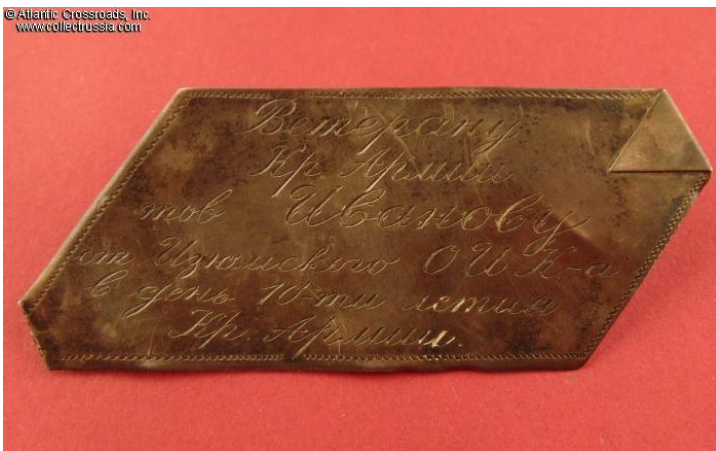 © Atlantic Crossroads, Inc.
www.collectrussia.com
Ветерану
Кр. Армии
тов Иванову
от Изюмского ОИК-а
в день 10-ти летия
Кр. Армии.